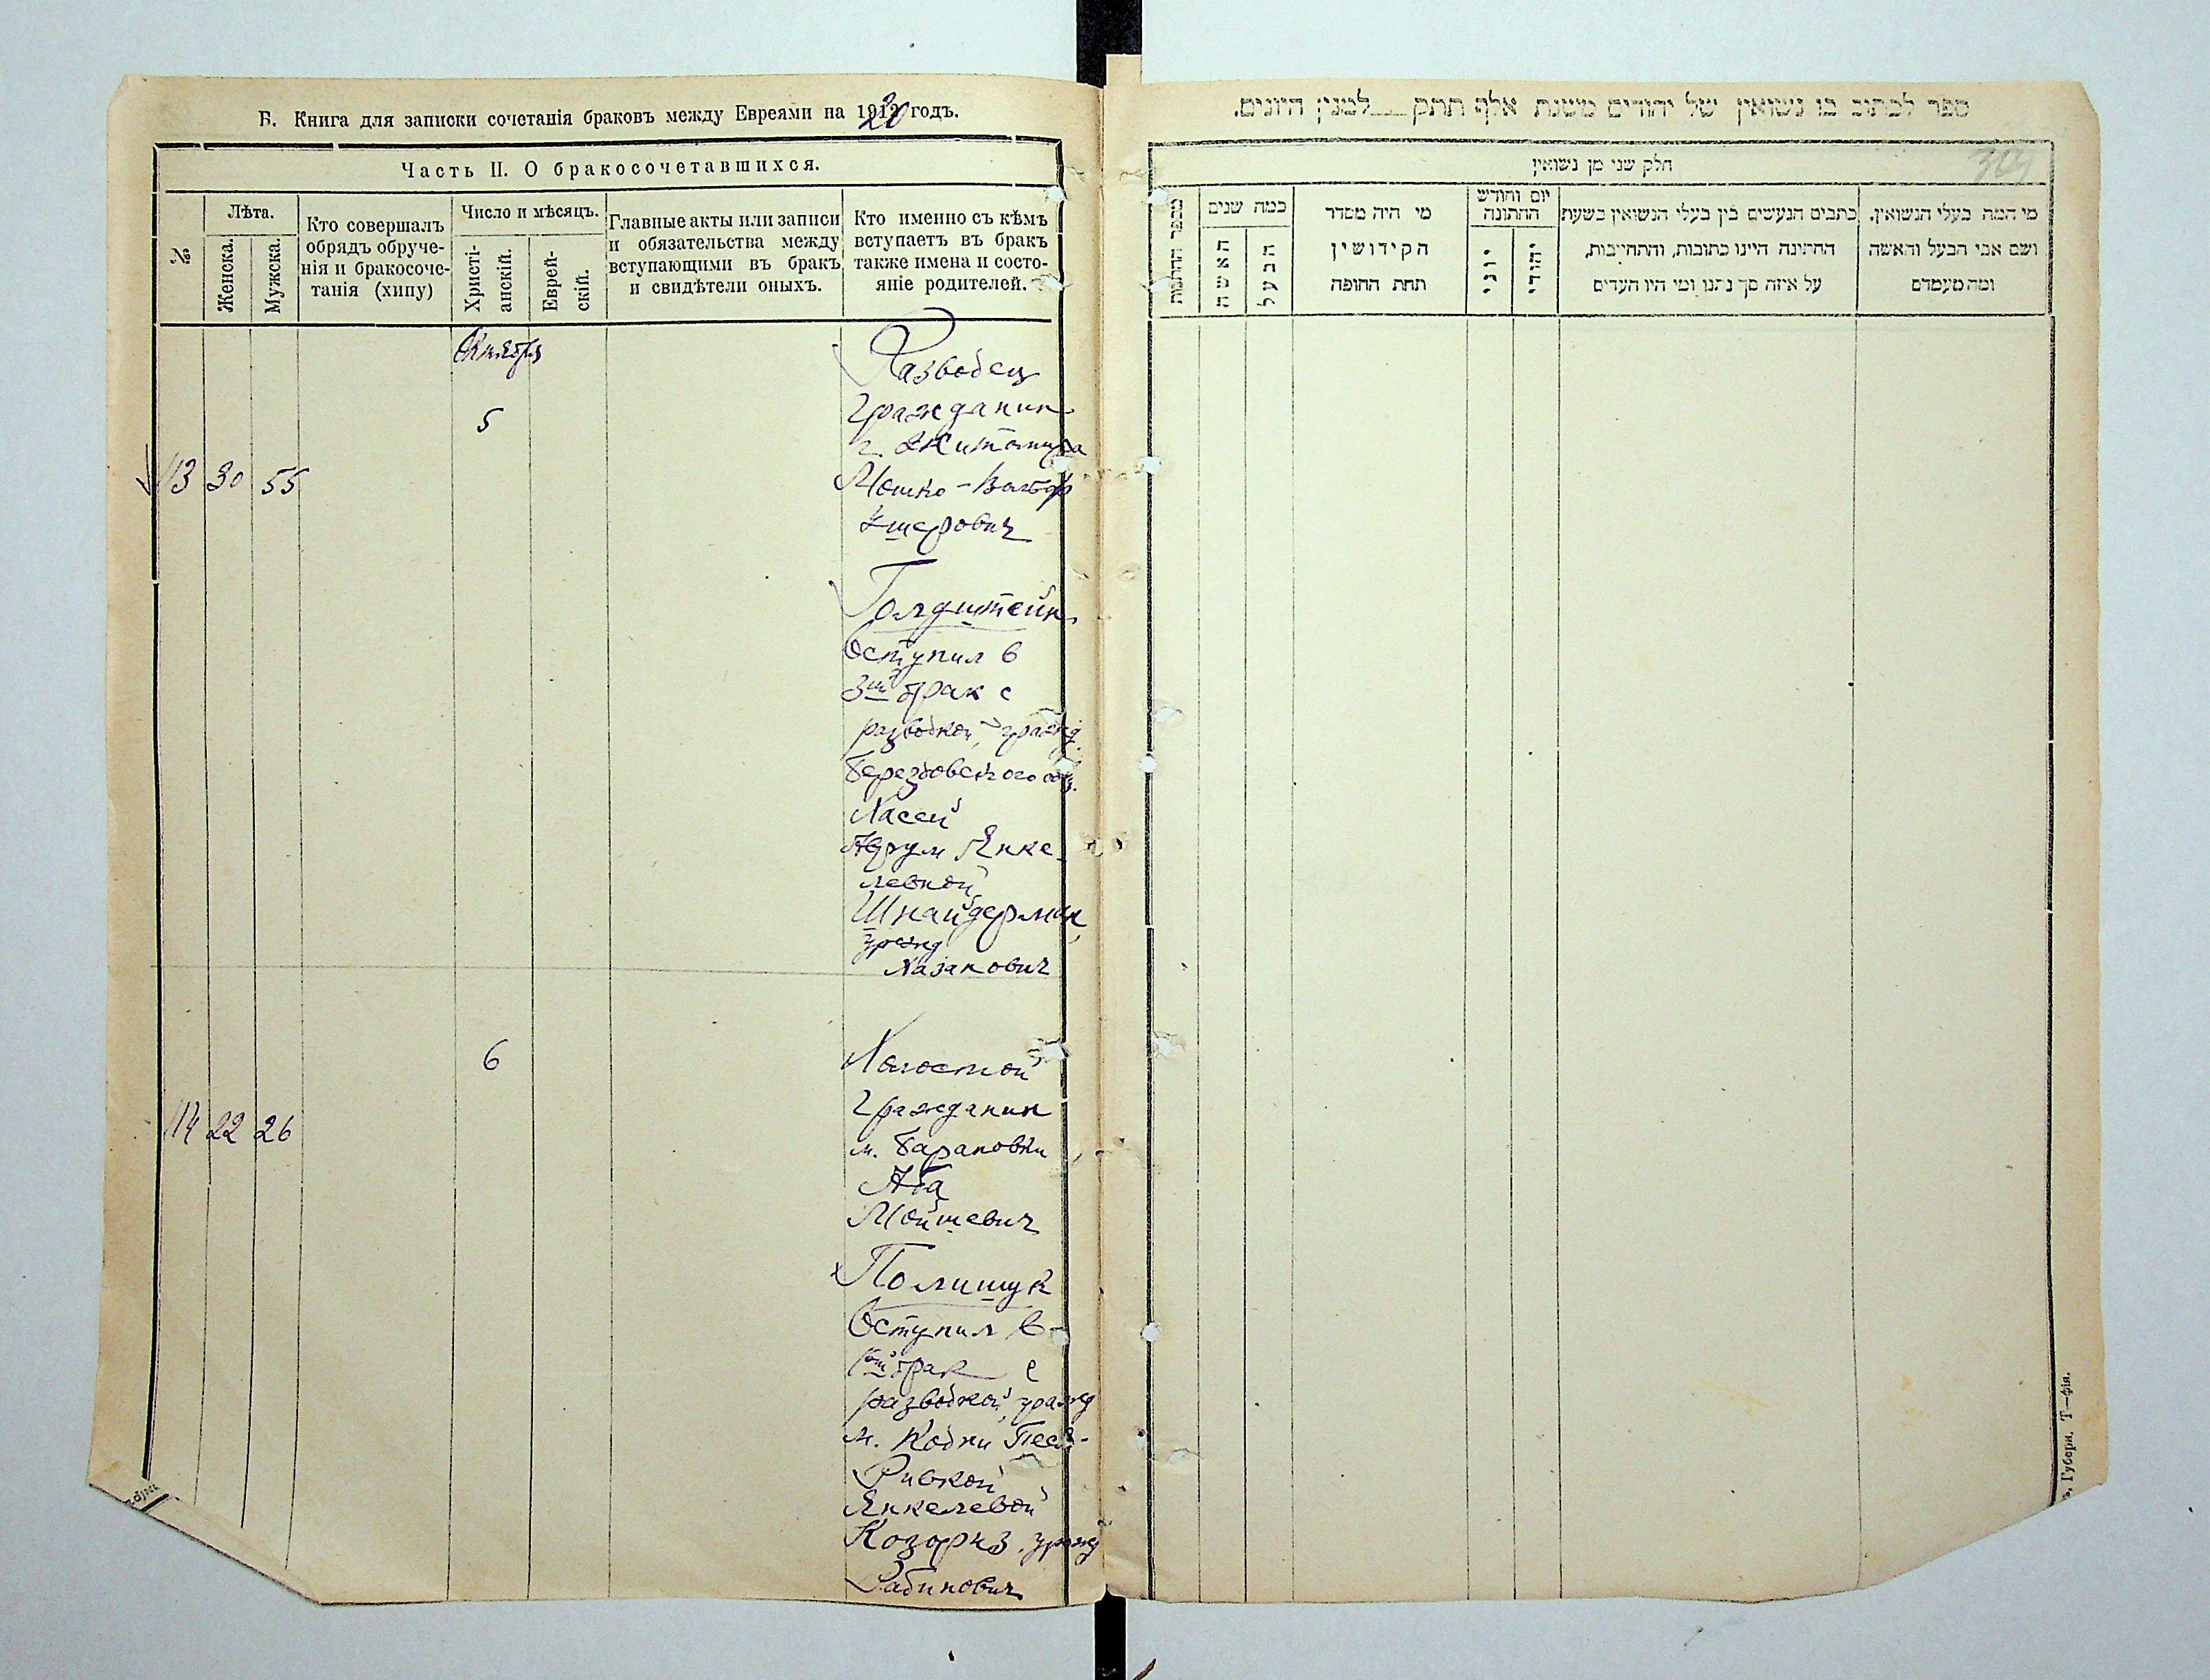 Б. Книга для записки сочетанія браковъ между Евреями на 1920 годъ.
Часть II. О бракосочетавшихся.
№
Лѣта.
Женска.
Мужска.
Кто совершалъ
обрядъ обруче-
нія и бракосоче-
танія (хипу)
Число и мѣсяцъ.
Христі-
анскій.
Еврей-
скій.
Главные акты или записи
и обязательства между
вступающими въ бракъ
и свидѣтели оныхъ.
Кто именно съ кѣмъ
вступаетъ въ бракъ
также имена и состо-
яніе родителей.
Октября
5
113 30 55
Разводец
Гражданин
г. Житомира
Мошко-Вольф
Ушерович
Голдштейн
Вступил в
3ий брак с
разводкой, гражд.
Березовского общ.
Хасей
Явкe-
левной
Шнайдерман,
урожд
Хазанович
6
114 22 26
Холостой
Гражданин
м. Барановки
Аба
Мойшевич
Полищук
Вступил в
1ый брак с
разводкой, гражд
м. Кодни Песя-
Ривкой
Янкелевой
Козориз, урожд
Рабинович
ספר לכתוב בו נשואין של יהודים משנת אלף תתק___למנין היונים.
301
חלק שני מן נשואין
מספר החתנות
כמה שנים
האשה
הבעל
מי היה מסדר
הקידושין
תחת החופה
יום וחודש
החתונה
יוני
יהודי
כתבים הנעשים בין בעלי הנשואין בשעת
החתונה היינו כתובות, והתחייבות,
על איזה סך נתנו ומי היו העדים
מי המה בעלי הנשואין,
ושם אבי הבעל והאשה
ומה מעמדם
Губерн. Т—фія.